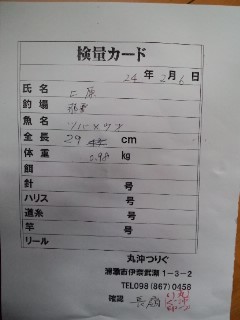 検量カード
24年2月6日
氏名 上原
釣場
魚名
全長 29 cm
体重 0.98 kg
餌
針 号
ハリス 号
道糸 号
竿 号
リール
丸沖つりぐ
浦添市伊奈武瀬1-3-2
TEL098(867)0458
確認